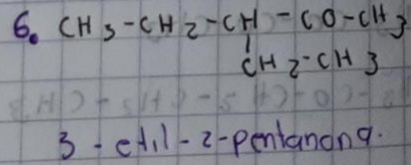 6. CH3-CH2-CH-CO-CH3
CH2-CH3
3-etil-2-pentanona.